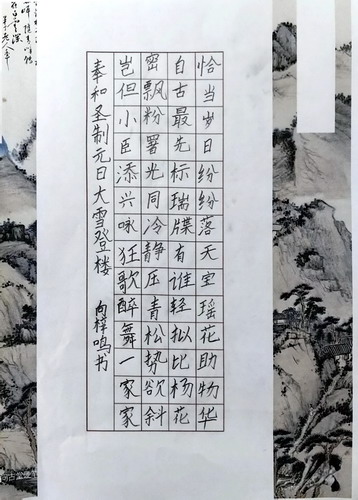 恰当岁日纷纷落天宝瑶花助物华
自古最先标瑞牒有谁轻拟比杨花
密飘粉署光同冷静压青松势欲斜
岂但小臣添兴咏狂歌醉舞一家家
奉和圣制元日大雪登楼 向梓鸣书